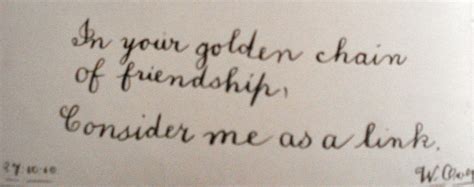 In your golden chain
of friendship,
Consider me as a link.
27.10.10 W.